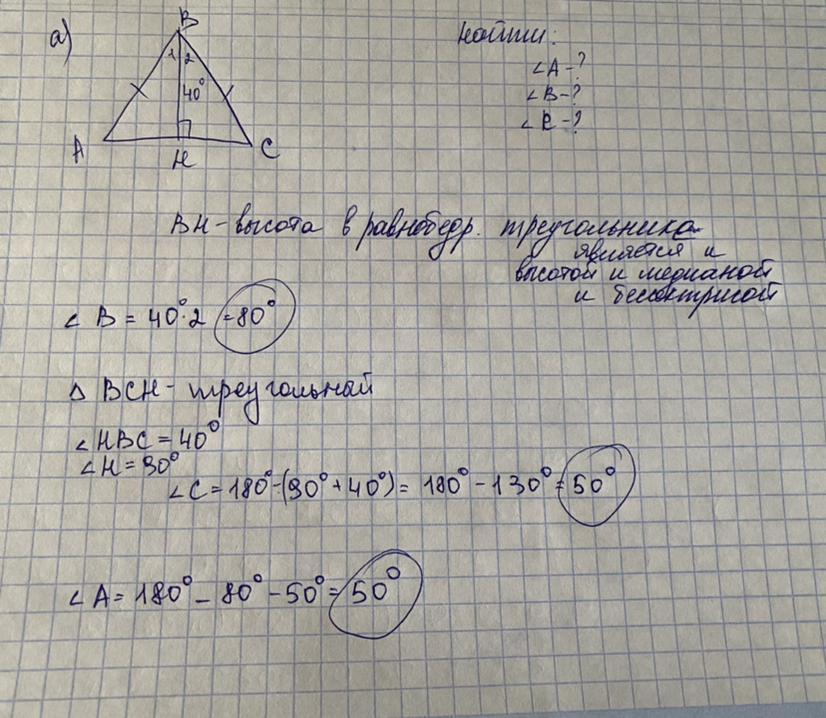 а)
B
1 2
40°
A
H
C
Найти:
∠A-?
∠B-?
∠C-?
BH-высота в равнобедр. треугольника
является и
высотой и медианой
и бессектрисой
∠B = 40°·2 =80°
△ BCH- треугольный
∠HBC = 40°
∠H = 90°
∠C = 180°-(90°+40°)= 180°-130°=50°
∠A= 180°- 80°-50°= 50°